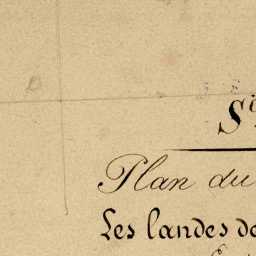 Plan du
Les landes de